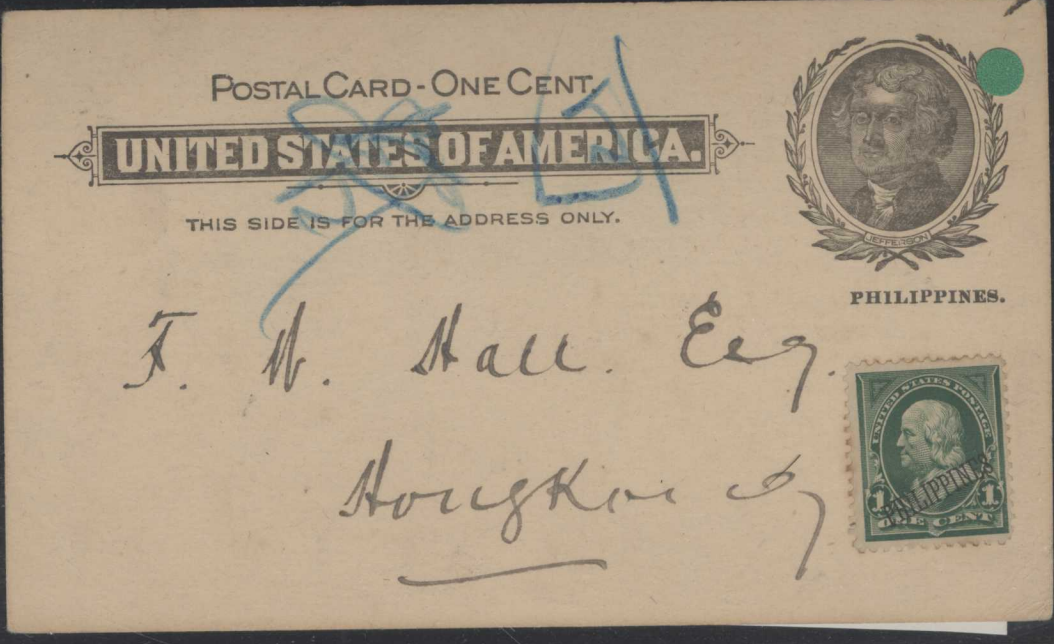 POSTAL CARD - ONE CENT.
UNITED STATES OF AMERICA.
THIS SIDE IS FOR THE ADDRESS ONLY.
JEFFERSON
PHILIPPINES.
F. W. Hall. Esq.
Hongkong
UNITED STATES POSTAGE
PHILIPPINES
1 1
ONE CENT